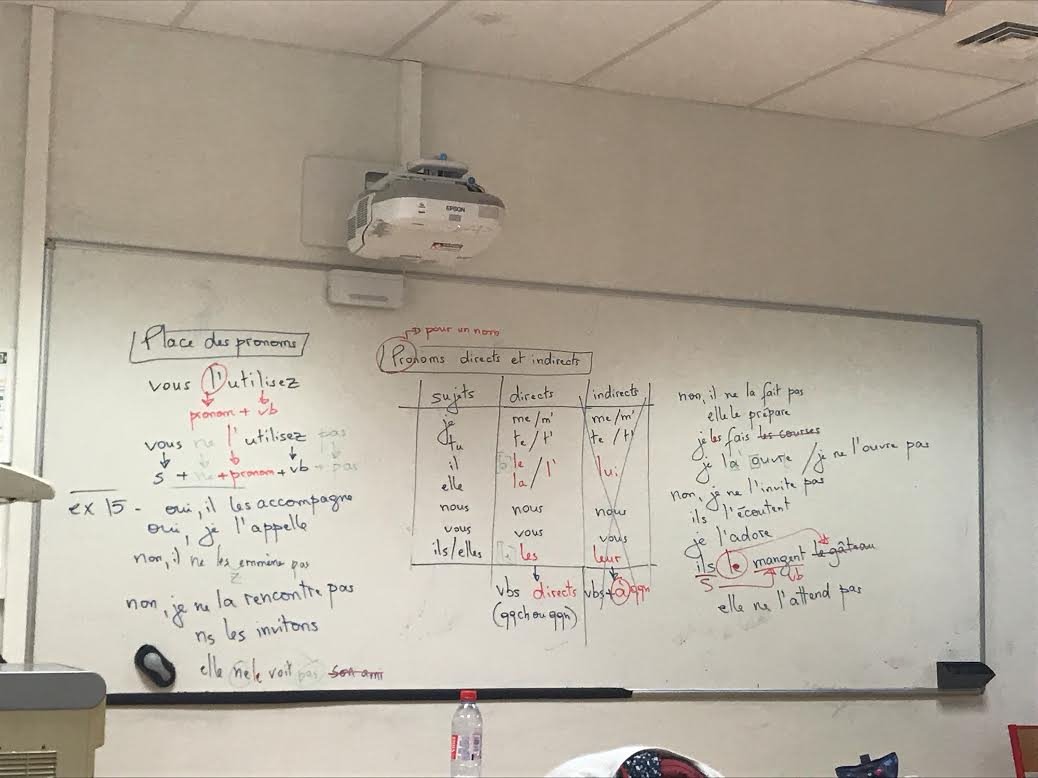 EPSON
Place des pronoms
vous l'utilisez
pronom + vb
vous ne l'utilisez pas
s + ne + pronom + vb + pas
ex 15 - oui, il les accompagne
oui, je l'appelle
non, il ne les emmène pas
z
non, je ne la rencontre pas
ns les invitons
elle ne le voit pas son ami
pour un nom
Pronoms directs et indirects
sujets directs indirects
je me/m' me/m'
tu te/t' te/t'
il le
elle la /l' lui
nous nous nous
vous vous vous
ils/elles les leur
vbs directs vbs + à qqn
(qqch ou qqn)
non, il ne la fait pas
elle le prépare
je les fais les courses
je la ouvre / je ne l'ouvre pas
non, je ne l'invite pas
ils l'écoutent
je l'adore
ils le mangent le gâteau
S vb
elle ne l'attend pas